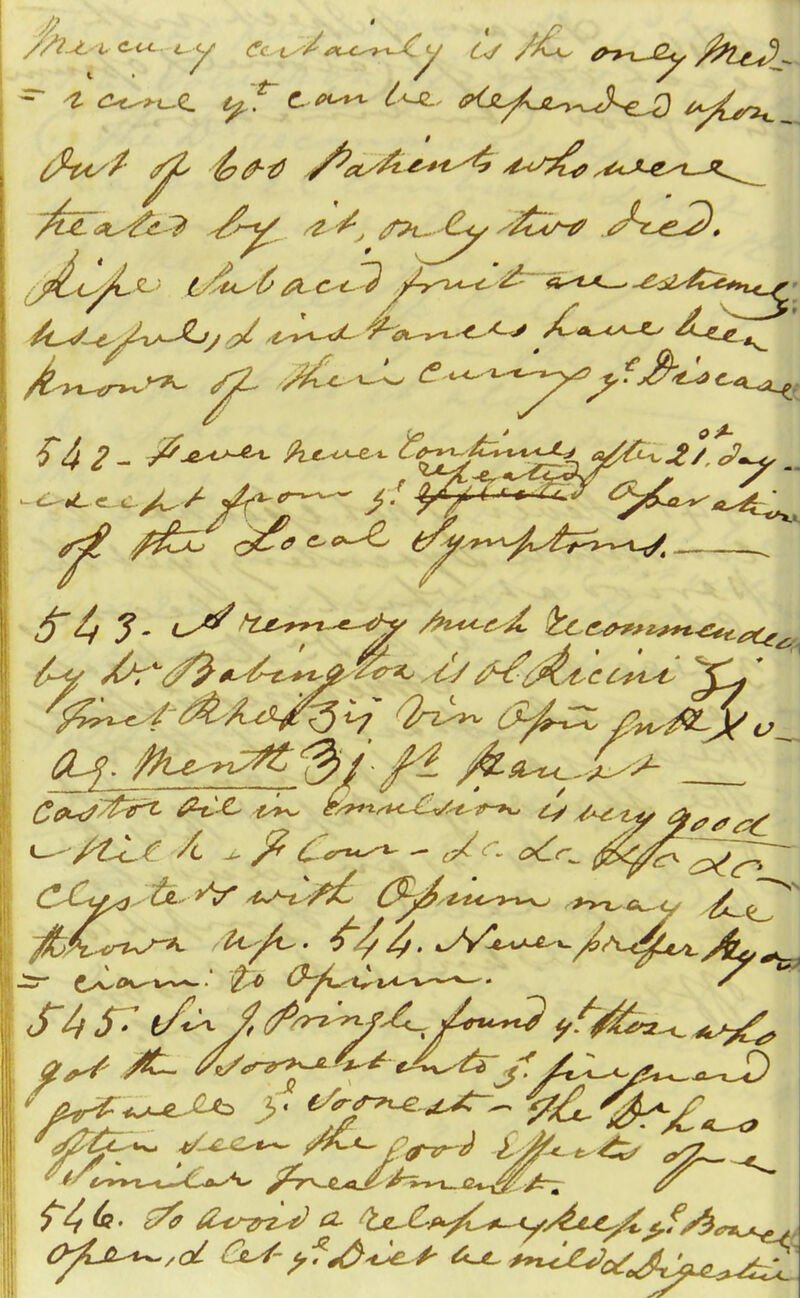 Mercury certainly is the only Med-
=icine yt. can be depended upon_
Out of 600 Patients who were
treated by it, only two died.
Ripe Subacid fruit are extremely
usefull, & instances have been
known of their curing ye Disease
542- Fever never continues after 21st. day_
-except from ye repeated Operation
of the Local Symptoms.
543. A remedy much recommended
by Dr. Babington is ol Ricini ʒj
Tinct Rhei ʒij Vin Opii gutt Xv_
Aq. Menth ℥j ft Haust
Castor Oil in Emulsion is very good
- Milk - &c. &c. &c
Clysters with Opium may be
thrown up. 544. Never prefer Hyos
=ciam: to Opium.
545. Sir J. Pringle found yt. those who
got the soonest into ye.
got well ye. soonest - The Dr. has
often seen the good Effects of a
Similar Treatment.
546. To avoid a relaps-y keep ye. Bowels
open, & let ye. Diet be mild & Digestive